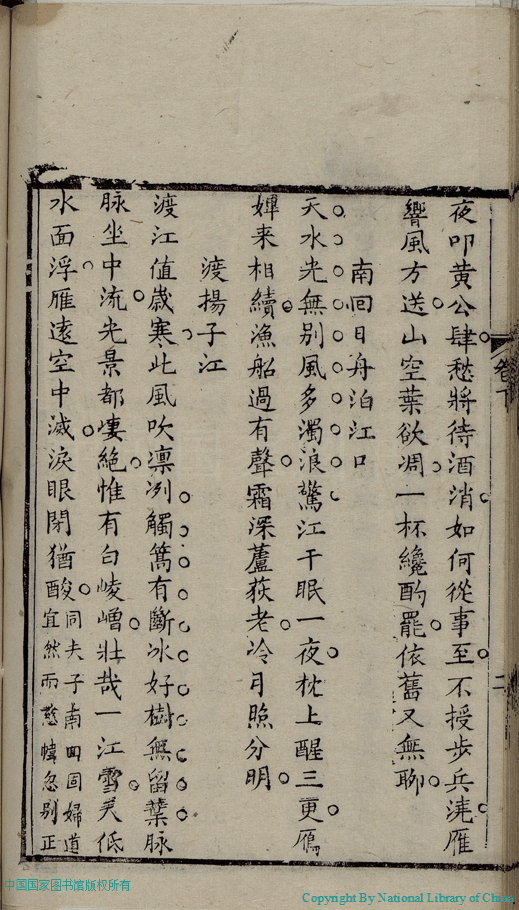 夜叩黄公肆愁將待酒消如何從事至不授步兵澆雁
響風方送山空葉欲凋一杯纔酌罷依舊又無聊
南回日舟泊江口
天水光無別風多濁浪驚江干眠一夜枕上醒三更鴈
嬋来相續漁船過有聲霜深蘆荻老冷月照分明
渡揚子江
渡江值歲寒此風吹凛冽觸篙有斷冰好樹無留葉脉
脉坐中流光景都悽絶惟有白崚嶒壯哉一江雪天低
水面浮雁遠空中滅淚眼閉猶酸同夫子南回固婦道
宜然而慈幃忽别正
卷下
二
中国国家图书馆版权所有
Copyright By National Library of China